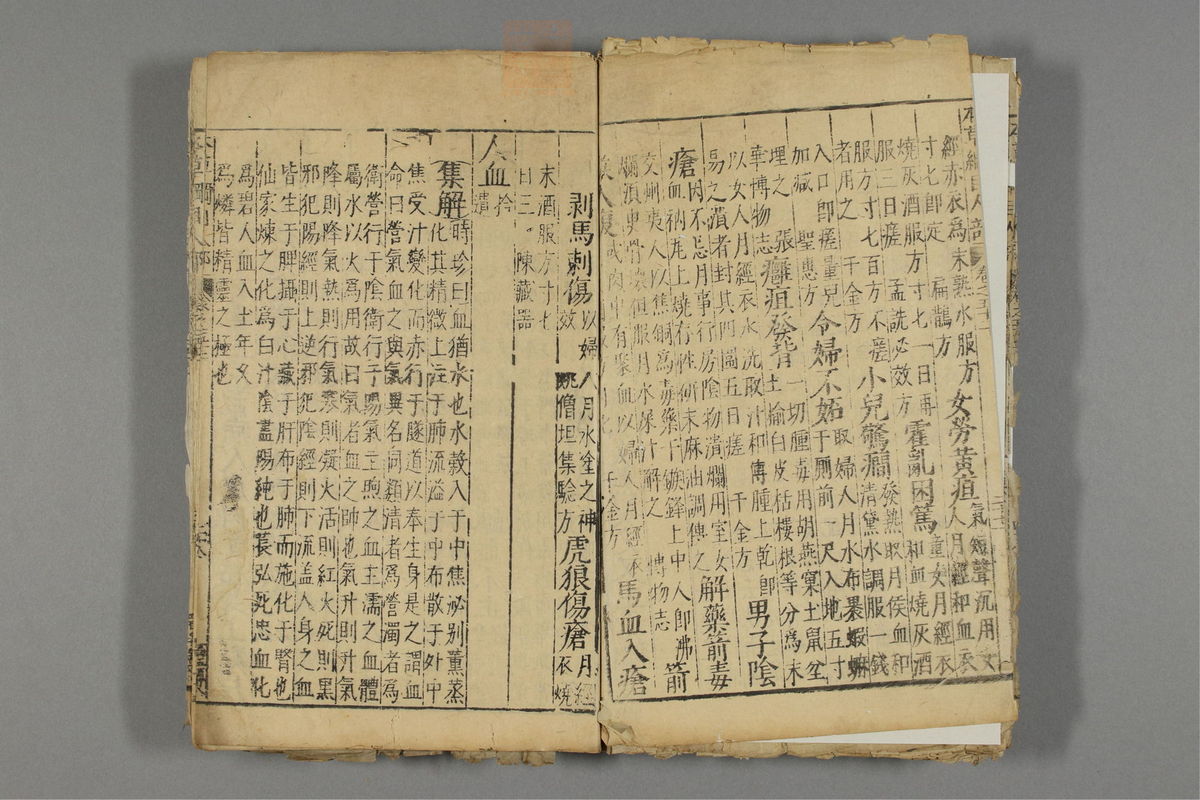 本草綱目人部
經赤衣爲末熟水服方
寸七即定 扁鵲方 女勞黃疸氣短聲沉用女人月經和血衣
燒灰酒服方寸七一日再
服三日瘥 孟詵必效方 霍亂困篤童女月經衣和血燒灰酒
服方寸七百方不瘥
者用之 千金方 小兒驚癇發熱取月候血和青黛水調服一錢
入口即瘥量兒
加減 聖惠方 令婦不妬取婦人月水布裹蝦蟆于厠前一尺入地五寸
埋之 張
華博物志 癰疽發背一切腫毒用胡燕窠土鼠坌土楡白皮栝樓根等分爲末
以女人月經衣水洗取汁和傅腫上乾即
易之潰者封其四圍五日瘥 千金方 男子陰
瘡因不忌月事行房陰物潰爛用室女
血衲瓦上燒存性研末麻油調傅之 解藥箭毒
交州夷人以焦銅爲毒藥于鏃鋒上中人即沸
爛須臾骨壞但服月水屎汁解之 博物志 箭
鏃入腹或肉中有聚血以婦人月經衣 千金方 馬血入瘡
剥馬刺傷以婦人月水塗之神效 姚僧坦集驗方 虎狼傷瘡月經衣燒
末酒服方寸七
日三 陳藏器
人血拾遺
集解時珍曰血猶水也水穀入于中焦泌別薰蒸
化其精微上注于肺流溢于中布散于外中
焦受汁變化而赤行于隧道以奉生身是之謂血
命曰營氣血之與氣異名同類清者爲營濁者爲
衛營行于陰衛行于陽氣主煦之血主濡之血體
屬水以火爲用故曰氣者血之帥也氣升則升氣
降則降氣熱則行氣寒則凝火活則紅火死則黑
邪犯陽經則上逆邪犯陰經則下流蓋人身之血
皆生于脾攝于心藏于肝布于肺而施化于腎也
仙家煉之化爲白汁陰盡陽純也萇弘死忠血化
爲碧人血入土年久
爲燐皆精靈之極也